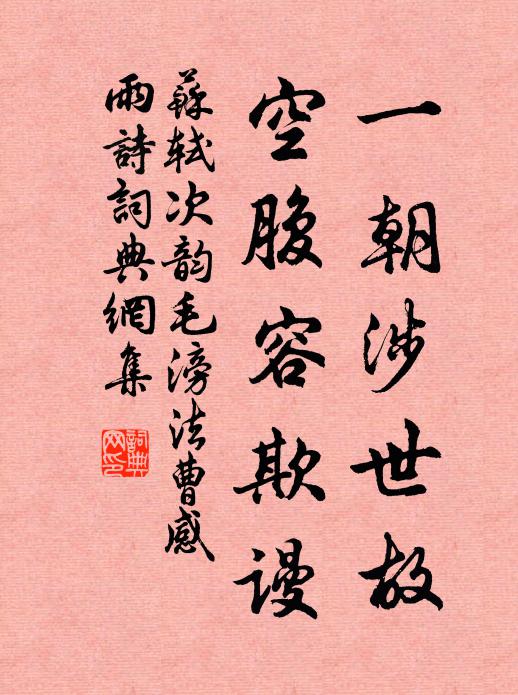 一朝涉世故
空腹容欺謾
蘇軾次韵毛滂法曹感
雨詩詞典網集
詞典
网印